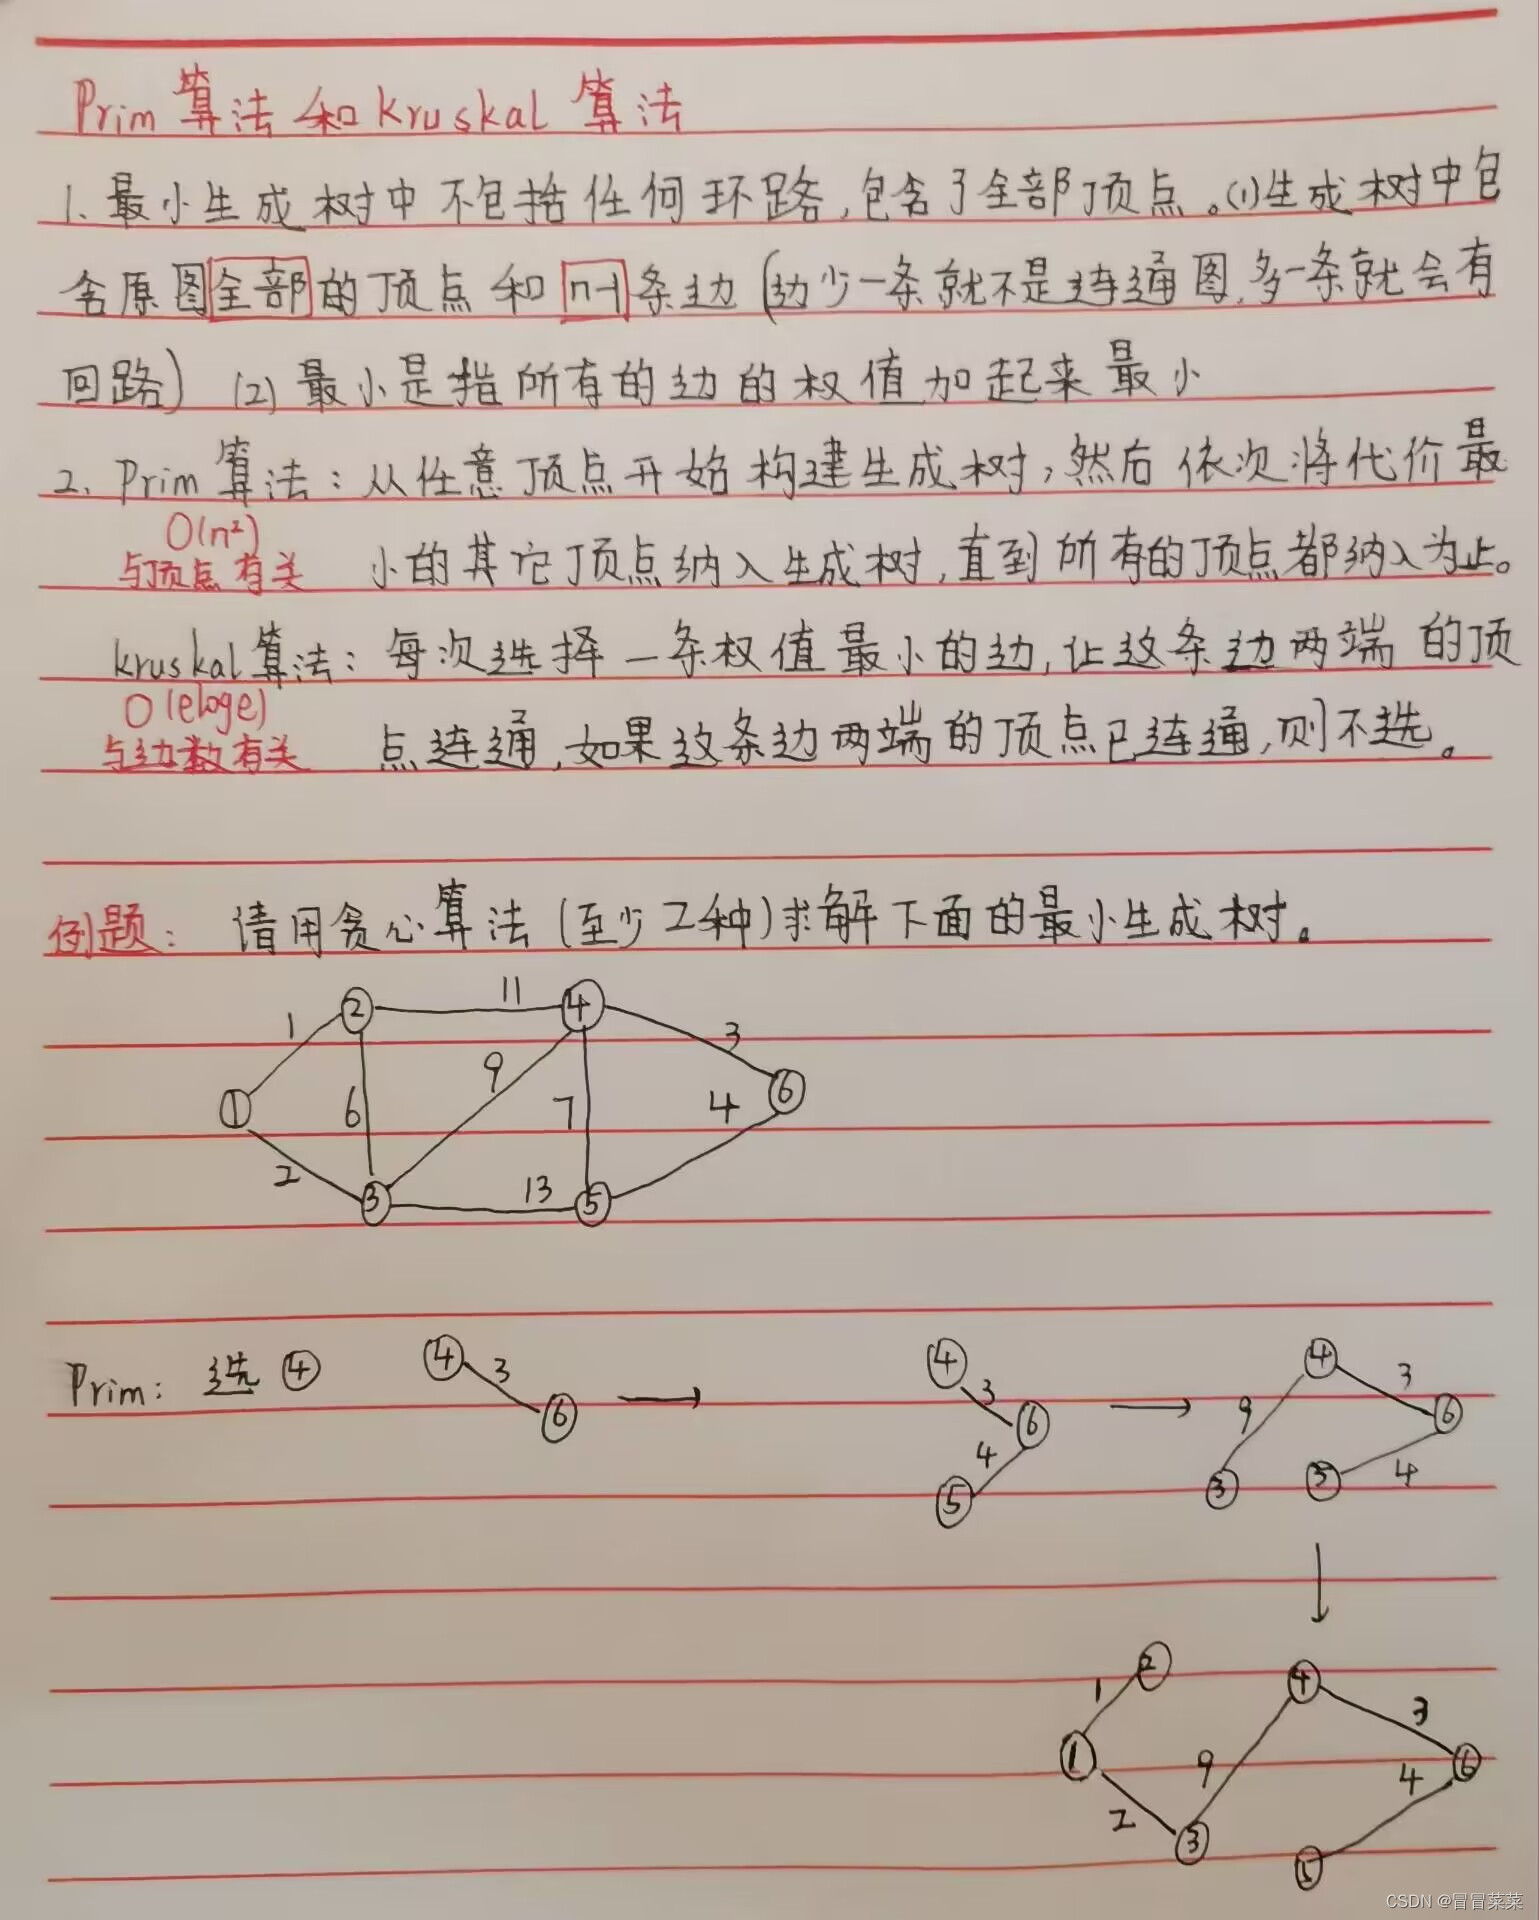 Prim算法和kruskal算法
1、最小生成树中不包括任何环路,包含了全部顶点。(1)生成树中包
含原图全部的顶点和n-1条边(边少一条就不是连通图,多一条就会有
回路) (2)最小是指所有的边的权值加起来最小
2、Prim算法:从任意顶点开始构建生成树,然后依次将代价最
O(n²)
与顶点有关 小的其它顶点纳入生成树,直到所有的顶点都纳入为止。
kruskal算法:每次选择一条权值最小的边,让这条边两端的顶
O(eloge)
与边数有关 点连通,如果这条边两端的顶点已连通,则不选。
例题: 请用贪心算法(至少2种)求解下面的最小生成树。
② 11 ④
1 3
9 ⑥
① 6 7 4
2
③ 13 ⑤
Prim: 选④ ④ 3 ⑥ → ④ 3 ⑥ 4 ⑤ → ④ 3 ⑥ 9 ③ ⑤ 4
↓
② ④
1 3
① 9 ⑥
2 4
③ ⑤
CSDN @冒冒菜菜